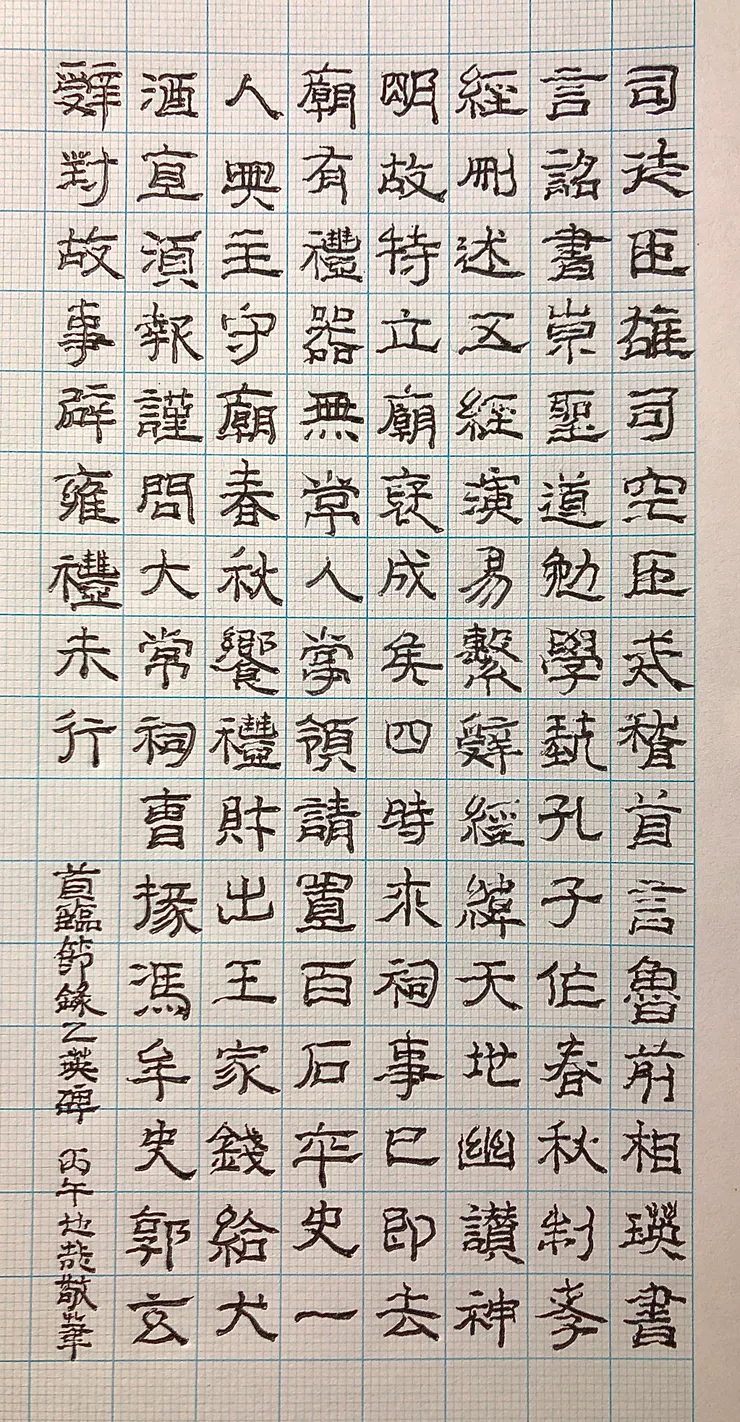 司徒臣雄司空臣戒稽首言魯前相瑛書
言詔書崇聖道勉學藝孔子作春秋制孝
經刪述五經演易繫辭經緯天地幽讚神
明故特立廟褒成侯四時來祠事已即去
廟有禮器無常人掌領請置百石卒史一
人興主守廟春秋饗禮財出王家錢給犬
酒直須報謹問大常祠曹掾馮牟史郭玄
辭對故事辟雍禮未行
首臨節錄乙瑛碑 丙午 敬筆